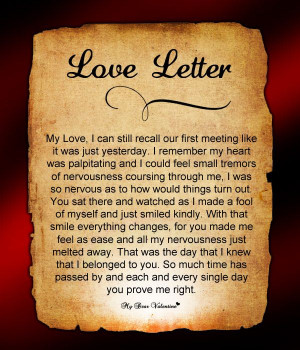 Love Letter
My Love, I can still recall our first meeting like
it was just yesterday. I remember my heart
was palpitating and I could feel small tremors
of nervousness coursing through me, I was
so nervous as to how would things turn out.
You sat there and watched as I made a fool
of myself and just smiled kindly. With that
smile everything changes, for you made me
feel as ease and all my nervousness just
melted away. That was the day that I knew
that I belonged to you. So much time has
passed by and each and every single day
you prove me right.
My Dear Valentine